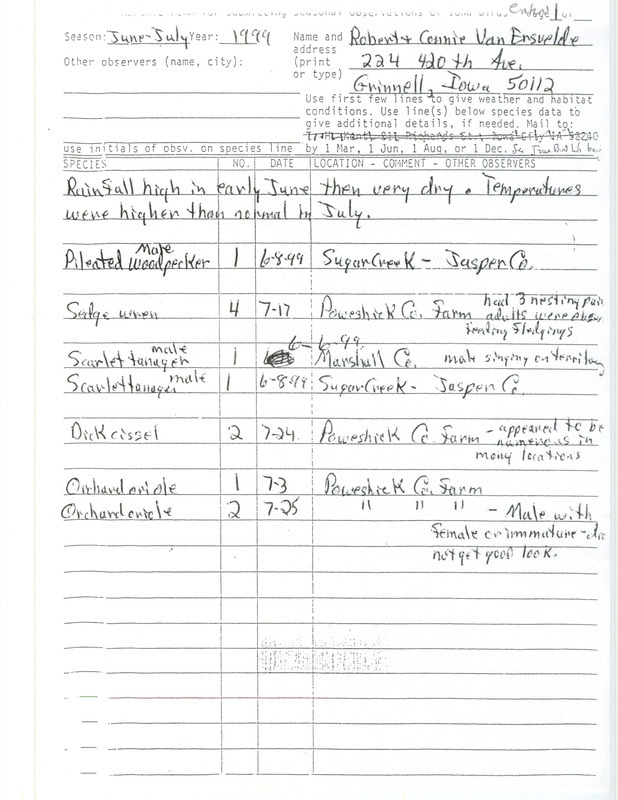 Season: June-July Year: 1999 Name and Robert & Connie Van Ersvelde
address
Other observers (name, city): (print 224 420th Ave.
or type) Grinnell, Iowa 50112
Use first few lines to give weather and habitat
conditions. Use line(s) below species data to
give additional details, if needed. Mail to:
use initials of obsv. on species line by 1 Mar, 1 Jun, 1 Aug, or 1 Dec.
SPECIES NO. DATE LOCATION - COMMENT - OTHER OBSERVERS
Rainfall high in early June then very dry. Temperatures
were higher than normal in July.
Male
Pileated woodpecker 1 6-8-99 Sugar Creek - Jasper Co.
Sedge wren 4 7-17 Poweshiek Co. Farm had 3 nesting pair
adults were
feeding fledgings
male 6-6-99
Scarlet tanager 1 Marshall Co. male singing on territory
Scarlet tanager male 1 6-8-99 Sugar Creek - Jasper Co.
Dickcissel 2 7-24 Poweshiek Co. Farm - appeared to be
numerous in
many locations
Orchard oriole 1 7-3 Poweshiek Co. Farm
Orchard oriole 2 7-25 " " " - Male with
female or immature - did
not get good look.